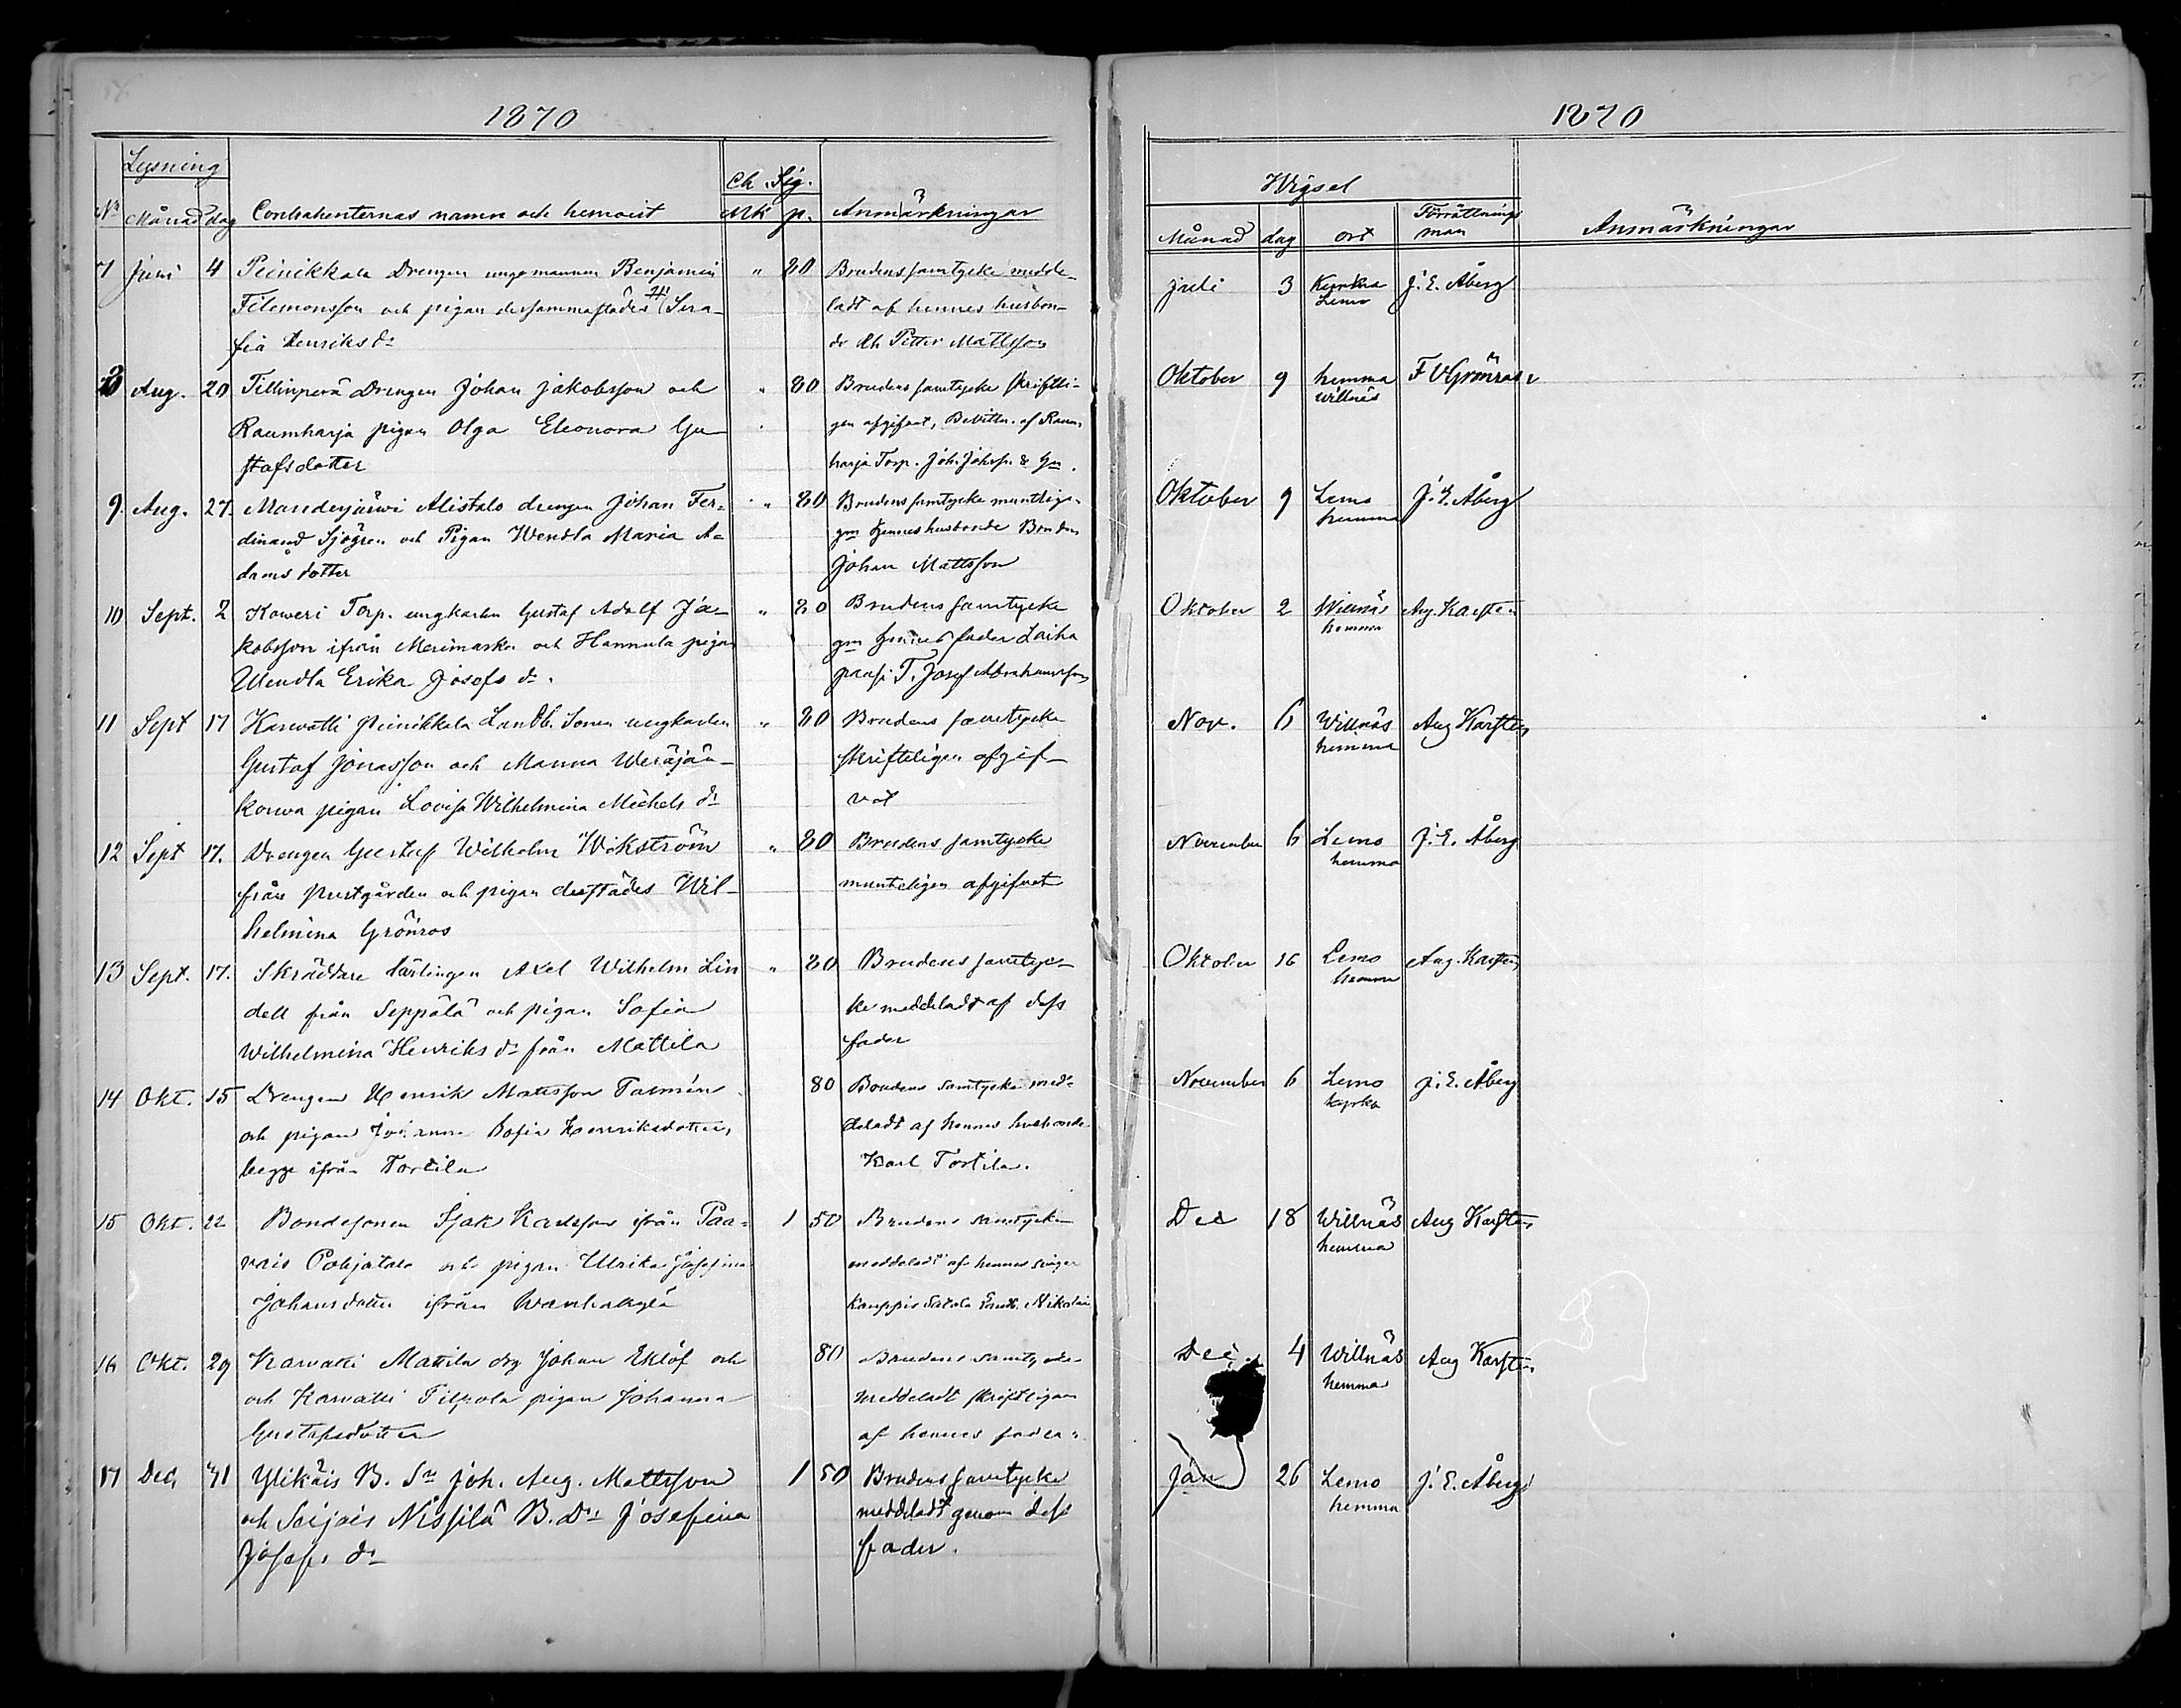 1870
Lysning
Ch. Sig.
No Månad dag Contrahenternas namn och hemort Mk p. Anmärkningar
7 Juni 4 Peinikkala Drengen unge mannen Benjamin " 80 Brudens samtycke medde-
Filemonsson och pigan dersammastädes Sera- ladt af hennes husbon-
fia Henriks dr de Petter Mattsson
8 Aug. 20 Tillinperä Drengen Johan Jakobsson och " 80 Brudens samtycke skriftli-
Raumharja pigan Olga Eleonora Gu- gen afgifvet, af Raum
stafsdotter harja Torp.
9 Aug. 27. Alistalo drengen Johan Fer- " 80 Brudens samtycke muntlig-
dinand Sjögren och Pigan Wendla Maria A- gm hennes husbonde Bonden
damsdotter Johan Mattsson
10 Sept. 2 Koweri Torp. ungkarlen Gustaf Adolf Ja- " 80 Brudens samtycke
kobsson ifrån Merimasku och Hannula pigan gm hennes fader
Wendla Erika Josefs dr. T. Josef Abrahamsson
11 Sept 17 Karwatti Peinikkala Landb. Sonen ungkarlen " 80 Brudens samtycke
Gustaf Jonasson och Manna skrifteligen afgif-
korwa pigan Lovisa Wilhelmina Michels dr vet
12 Sept 17. Drengen Gustaf Wilhelm Wikström " 80 Brudens samtycke
från Prestgården och pigan derstädes Wil- munteligen afgifvet
helmina Grönroos
13 Sept. 17. Skräddare lärlingen Axel Wilhelm Lin " 80 Brudens samtyc-
dell från Seppälä och pigan Sofia ke meddeladt af dess
Wilhelmina Henriks dr från Mattila fader
14 Okt. 15 Drengen Henrik Mattsson Tammén 80 Brudens samtycke med-
och pigan Sofia Henriksdotter, deladt af hennes husbonde
begge ifrån Tortila Karl Tortila.
15 Okt. 22 Bondesonen Isak Karlsson ifrån Paa- 1 50 Brudens samtycke
vais Pohjatalo och pigan Ulrika Josefina meddeladt af hennes
Johansdotter ifrån Wanhakylä Kauppis
16 Okt. 29 Karvatti Mattila drg Johan Eklöf och 80 Brudens samtycke
och Karvatti Tilpola pigan Johanna meddeladt skriftligen
Gustafsdotter af hennes fader.
17 Dec. 31 Ylikäis B. Sn Joh. Aug. Mattsson 1 50 Brudens samtycke
och Saijais Nissilä B. Dr Josefina meddeladt genom dess
Josefs dr fader.
1870
Wigsel
Månad dag ort Förrättnings man Anmärkningar
Juli 3 Kyrka Lemo J. E. Åberg
Oktober 9 hemma Willnäs F V Grönroos
Oktober 9 Lemo hemma J. E. Åberg
Oktober 2 Willnäs hemma Aug. Karsten
Nov. 6 Willnäs hemma Aug Karsten
November 6 Lemo hemma J. E. Åberg
Oktober 16 Lemo hemma Aug. Karsten
November 6 Lemo kyrka J. E. Åberg
Dec 18 Willnäs hemma Aug Karsten
Dec. 4 Willnäs hemma Aug Karsten
Jan 26 Lemo hemma J. E. Åberg